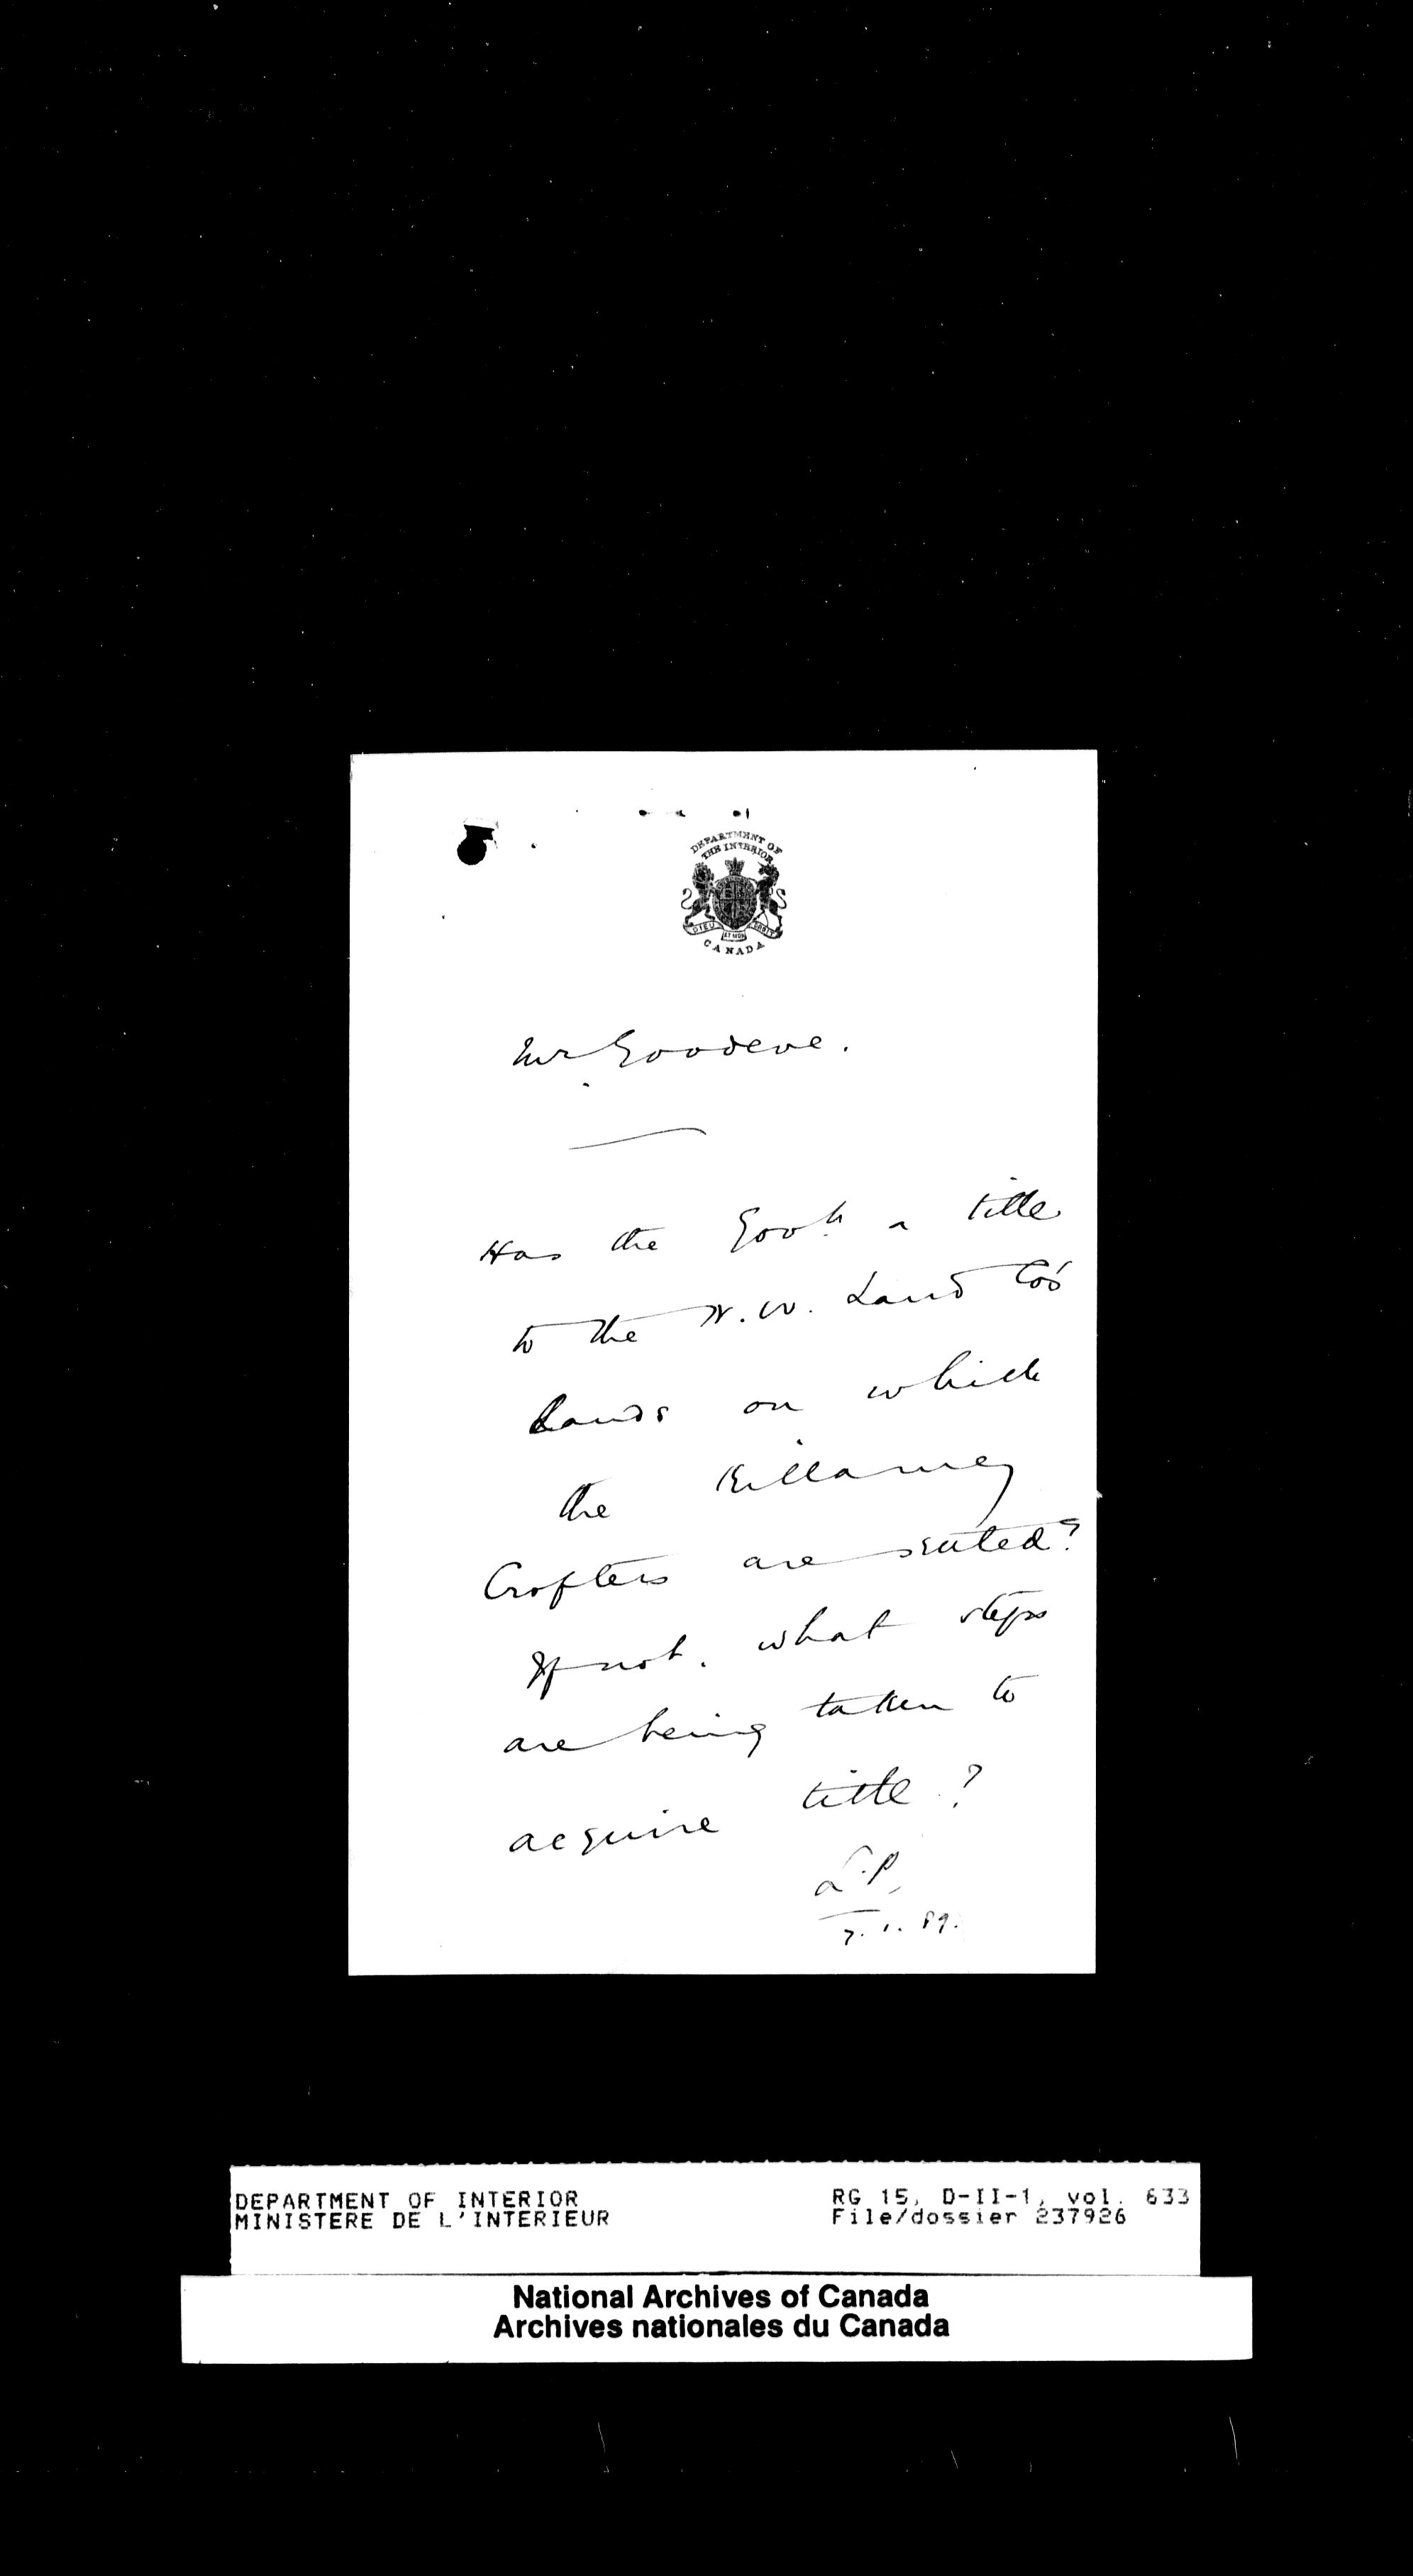 DEPARTMENT OF
THE INTERIOR
DIEU ET MON DROIT
CANADA
Mr Goodeve.
Has the Govt. a title
to the N.W. Land Co's
Lands on which
the Killarney
Crofters are seated?
If not, what steps
are being taken to
acquire title?
L.P.
7.1.89.
DEPARTMENT OF INTERIOR
MINISTERE DE L'INTERIEUR
RG 15, D-II-1, vol. 633
File/dossier 237926
National Archives of Canada
Archives nationales du Canada